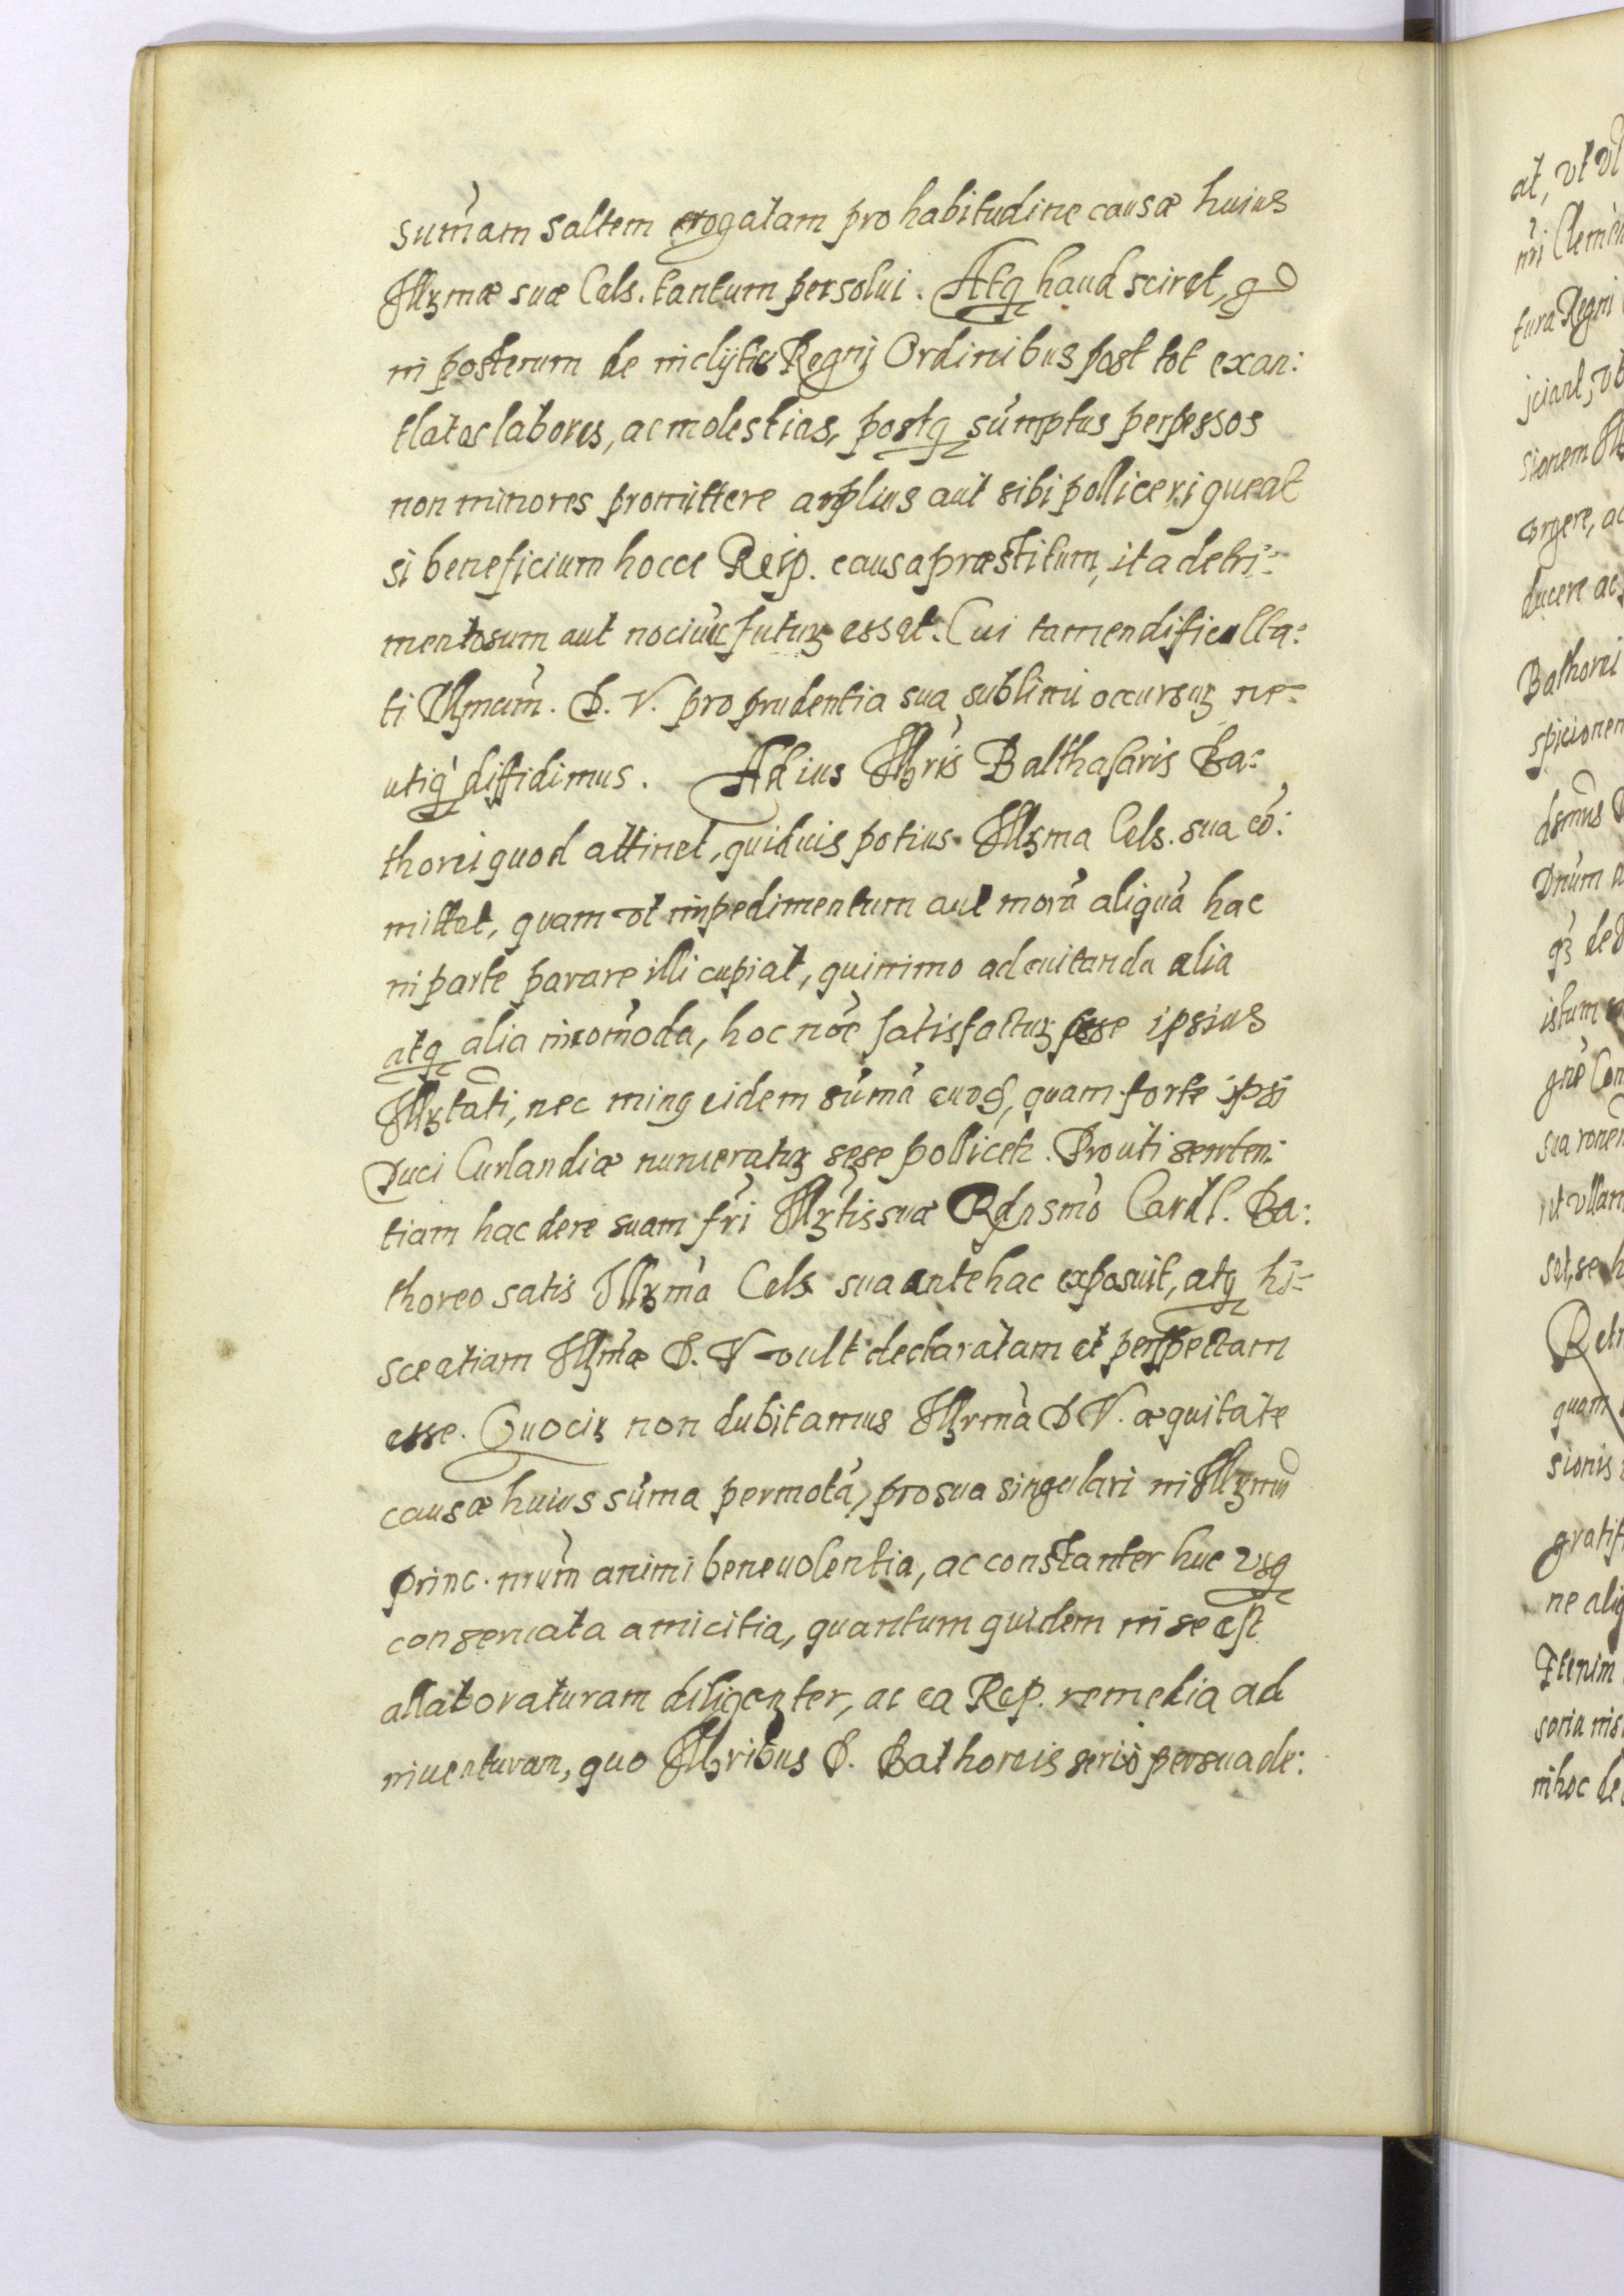 sum̄am saltem erogatam pro habitudine causæ huius
Illꝫmæ suæ Cels. tantum persolui. Atq́ haud sciret, qd
in posterum de inclijtis Regnj Ordinibus post tot exan:
tlatos labores, ac molestias, postq́ sum̄ptus perpessos
non minores promittere amplius aut sibi polliceri queat
si beneficium hocce Reip. causa præstitum, ita detri:
mentosum aut nociuū futuꝝ esset. Cui tamen dificulta:
ti Illꝫmam̄. D. V. pro prudentia sua sublimi occursuꝝ ne-
utiq́ diffidimus. Ad ius Illꝫris Balthasaris Ba:
thorei quod attinet, quiduis potius Illꝫma Cels. sua cō:
mittet, quam vt impedimentum aut morā aliquā hac
in parte parare illi cupiat, quinimo ad euitanda alia
atq́ alia incōmoda, hoc nōe satisfactuꝝ esse ipsius
Illꝫtati, nec minq eidem sum̄ā quam forte ipsi
Duci Curlandiæ numeratuꝝ sese pollicetꝛ. Prouti senten:
tiam hac de re suam fr̄i Illꝫtis suæ Rdssmō Cardl. Ba:
thoreo satis Illꝫma Cels sua antehac exposuit, atq́ hi-
sce etiam Illꝫmæ D. V vult declaratam et perspectam
esse. Quociꝝ non dubitamus Illꝫmā D V. æquitate
causæ huius sum̄a permotā, pro sua singulari in Illꝫmū
princ. nrūm animi beneuolentia, ac constanter huc vsq́
conseruata amicitia, quantum quidem in se est
allaboraturam diligenter, ac ea Rep. remedia ad
inuenturam, quo Illꝫribus D. Bathoreis seriò persuade:
at, vt
nr̄i
tura Regni
jciant, vt
sionem
vrgere, ac
ducere ac
Bathorei
spicionem
Dn̄um
istum
gnē
sua ronem
rit vllam
set, se
quam
sionis
ne aliq
Etenim
soria
in hoc de